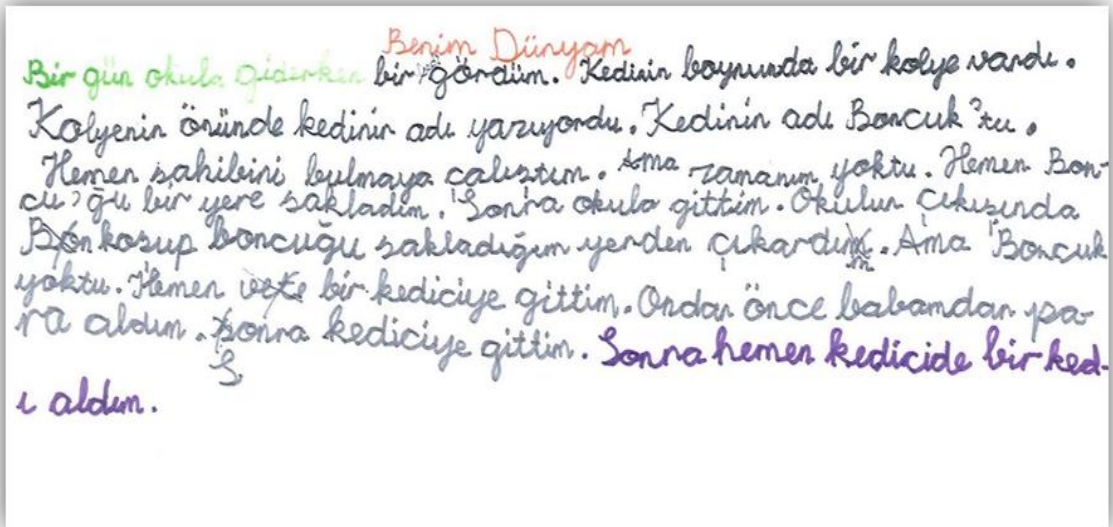 Benim Dünyam
Bir gün okula giderken bir gördüm. Kedinin boynunda bir kolye vardı.
Kolyenin önünde kedinin adı yazıyordu. Kedinin adı Boncuk'tu.
Hemen sahibini bulmaya çalıştım. Ama zamanım yoktu. Hemen Bon-
cu'ğu bir yere sakladım. Sonra okula gittim. Okulun çıkışında
koşup boncuğu sakladığım yerden çıkardım. Ama Boncuk
yoktu. Hemen bir kediciye gittim. Ondan önce babamdan pa-
ra aldım. Sonra kediciye gittim. Sonra hemen kedicide bir ked-
i aldım.